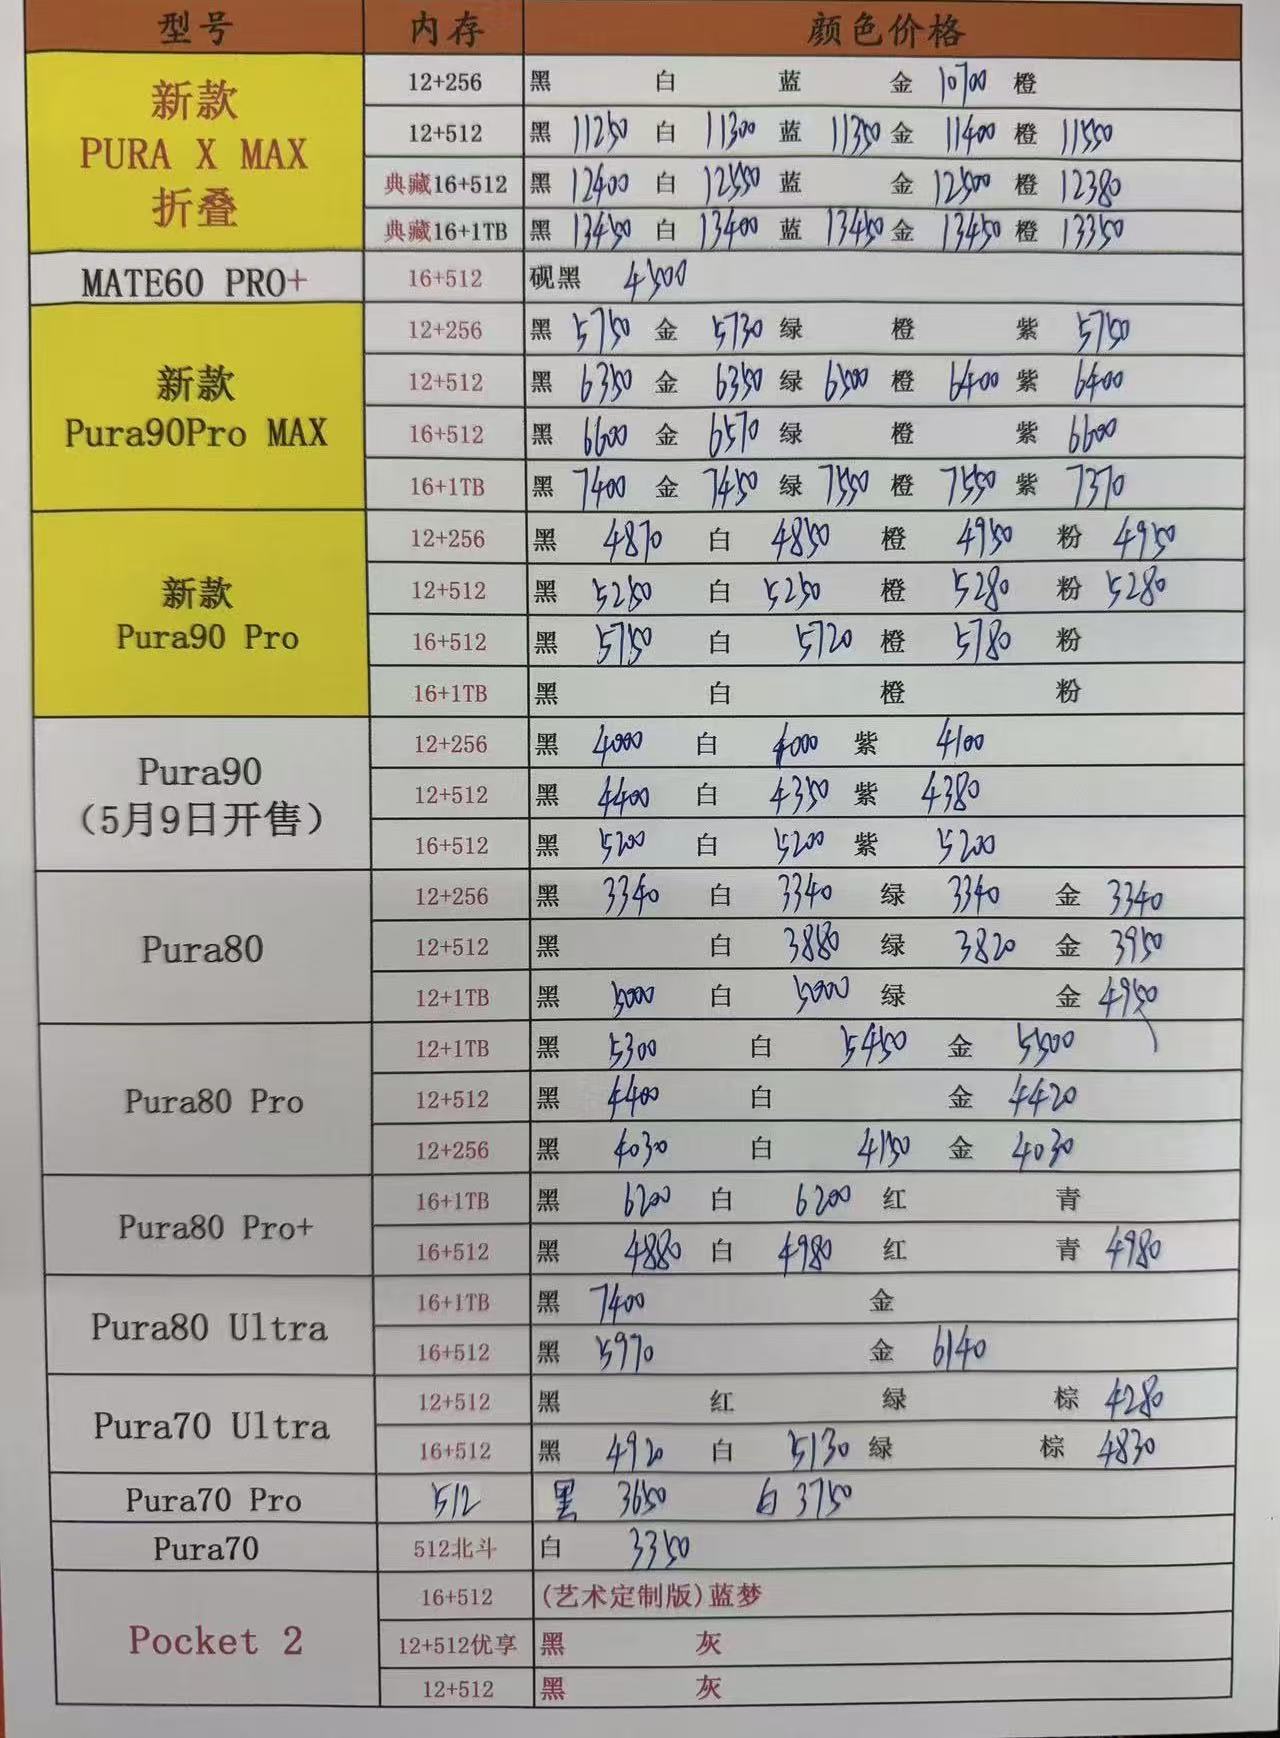 型号 内存 颜色价格
新款
PURA X MAX
折叠
12+256 黑 白 蓝 金 10700 橙
12+512 黑 11250 白 11300 蓝 11350 金 11400 橙 11550
典藏16+512 黑 12400 白 12550 蓝 金 12500 橙 12380
典藏16+1TB 黑 13450 白 13400 蓝 13450 金 13450 橙 13350
MATE60 PRO+ 16+512 砚黑 4500
新款
Pura90Pro MAX
12+256 黑 5750 金 5730 绿 橙 紫 5750
12+512 黑 6350 金 6350 绿 6500 橙 6400 紫 6400
16+512 黑 6600 金 6570 绿 橙 紫 6600
16+1TB 黑 7400 金 7450 绿 7550 橙 7550 紫 7370
新款
Pura90 Pro
12+256 黑 4870 白 4850 橙 4950 粉 4950
12+512 黑 5250 白 5250 橙 5280 粉 5280
16+512 黑 5750 白 5720 橙 5780 粉
16+1TB 黑 白 橙 粉
Pura90
（5月9日开售）
12+256 黑 4000 白 4000 紫 4100
12+512 黑 4400 白 4350 紫 4380
16+512 黑 5200 白 5200 紫 5200
Pura80
12+256 黑 3340 白 3340 绿 3340 金 3340
12+512 黑 白 3880 绿 3820 金 3950
12+1TB 黑 5000 白 5000 绿 金 4950
Pura80 Pro
12+1TB 黑 5300 白 5450 金 5500
12+512 黑 4400 白 金 4420
12+256 黑 4030 白 4150 金 4030
Pura80 Pro+
16+1TB 黑 6200 白 6200 红 青
16+512 黑 4880 白 4980 红 青 4980
Pura80 Ultra
16+1TB 黑 7400 金
16+512 黑 5970 金 6140
Pura70 Ultra
12+512 黑 红 绿 棕 4280
16+512 黑 4920 白 5130 绿 棕 4830
Pura70 Pro 512 黑 3650 白 3750
Pura70 512北斗 白 3350
Pocket 2
16+512 (艺术定制版)蓝梦
12+512优享 黑 灰
12+512 黑 灰